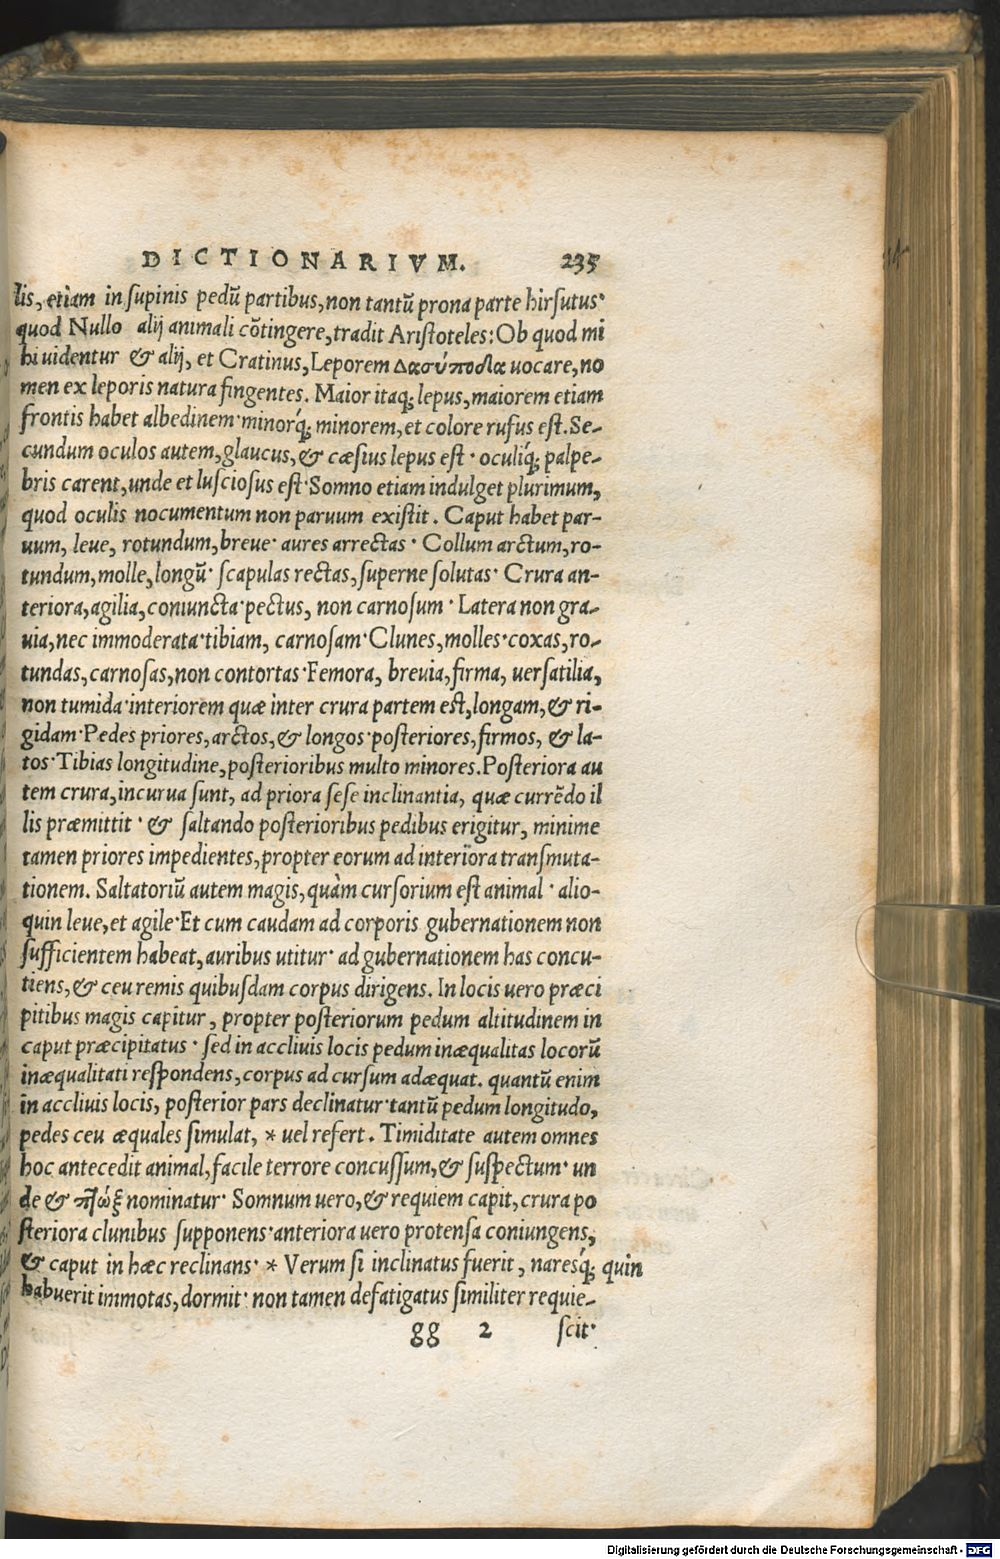 DICTIONARIVM. 235
lis, etiam in supinis pedū partibus, non tantū prona parte hirsutus·
quod Nullo alij animali cōtingere, tradit Aristoteles: Ob quod mi
hi uidentur & alij, et Cratinus, Leporem Δασύποδα uocare, no
men ex leporis natura fingentes. Maior itaq; lepus, maiorem etiam
frontis habet albedinem· minorq́; minorem, et colore rufus est. Se-
cundum oculos autem, glaucus, & cæsius lepus est · oculiq́; palpe-
bris carent, unde et lusciosus est· Somno etiam indulget plurimum,
quod oculis nocumentum non paruum existit. Caput habet par-
uum, leue, rotundum, breue· aures arrectas · Collum arctum, ro-
tundum, molle, longū· scapulas rectas, superne solutas· Crura an-
teriora, agilia, coniuncta· pectus, non carnosum · Latera non gra-
uia, nec immoderata· tibiam, carnosam· Clunes, molles· coxas, ro-
tundas, carnosas, non contortas· Femora, breuia, firma, uersatilia,
non tumida· interiorem quæ inter crura partem est, longam, & ri-
gidam· Pedes priores, arctos, & longos· posteriores, firmos, & la-
tos· Tibias longitudine, posterioribus multo minores. Posteriora au
tem crura, incurua sunt, ad priora sese inclinantia, quæ currēdo il
lis præmittit · & saltando posterioribus pedibus erigitur, minime
tamen priores impedientes, propter eorum ad interiora transmuta-
tionem. Saltatoriū autem magis, quàm cursorium est animal · alio-
quin leue, et agile· Et cum caudam ad corporis gubernationem non
sufficientem habeat, auribus utitur· ad gubernationem has concu-
tiens, & ceu remis quibusdam corpus dirigens. In locis uero præci
pitibus magis capitur, propter posteriorum pedum altitudinem in
caput præcipitatus · sed in accliuis locis pedum inæqualitas locorū
inæqualitati respondens, corpus ad cursum adæquat. quantū enim
in accliuis locis, posterior pars declinatur· tantū pedum longitudo,
pedes ceu æquales simulat, * uel refert. Timiditate autem omnes
hoc antecedit animal, facile terrore concussum, & suspectum· un
de & πτώξ nominatur· Somnum uero, & requiem capit, crura po
steriora clunibus supponens· anteriora uero protensa coniungens,
& caput in hæc reclinans· * Verum si inclinatus fuerit, naresq́; quin
habuerit immotas, dormit· non tamen defatigatus similiter requie-
gg 2 scit·
Digitalisierung gefördert durch die Deutsche Forschungsgemeinschaft - DFG